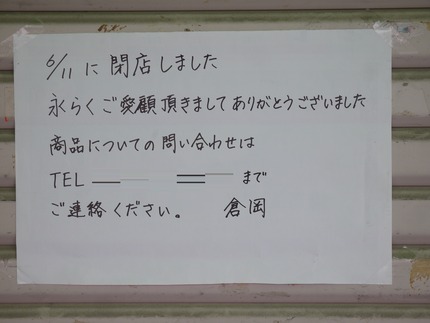 6/11 に 閉店しました
永らくご愛顧頂きましてありがとうございました
商品についての問い合わせは
TEL まで
ご連絡ください。 倉岡